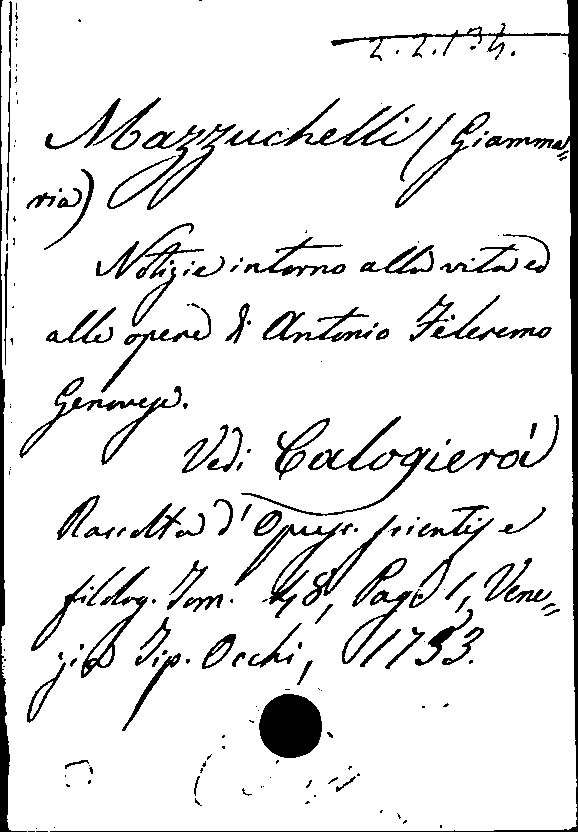 2.2.134.
Mazzuchelli (Giamma=
ria)
Notizie intorno alla vita ed
alle opere di Antonio Fileremo
Genovese.
Vedi Calogierà
Raccolta d'Opusc. scientif e
filolog. Tom. 48, Pag. 1, Vene=
zia Tip. Occhi, 1753.